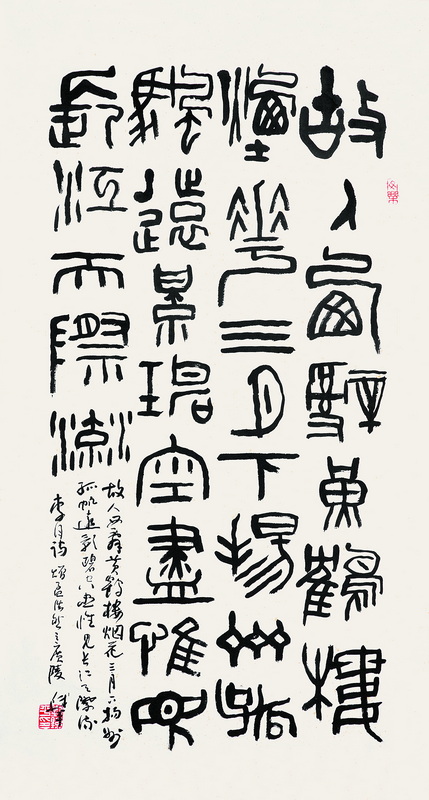 故人西辭黃鶴樓
煙花三月下揚州孤
颿遠景碧空盡惟見
長江天際流
故人西辞黄鹤楼烟花三月下扬州
孤帆遠影碧空尽惟見長江天際流
李白詩 贈孟浩然之廣陵